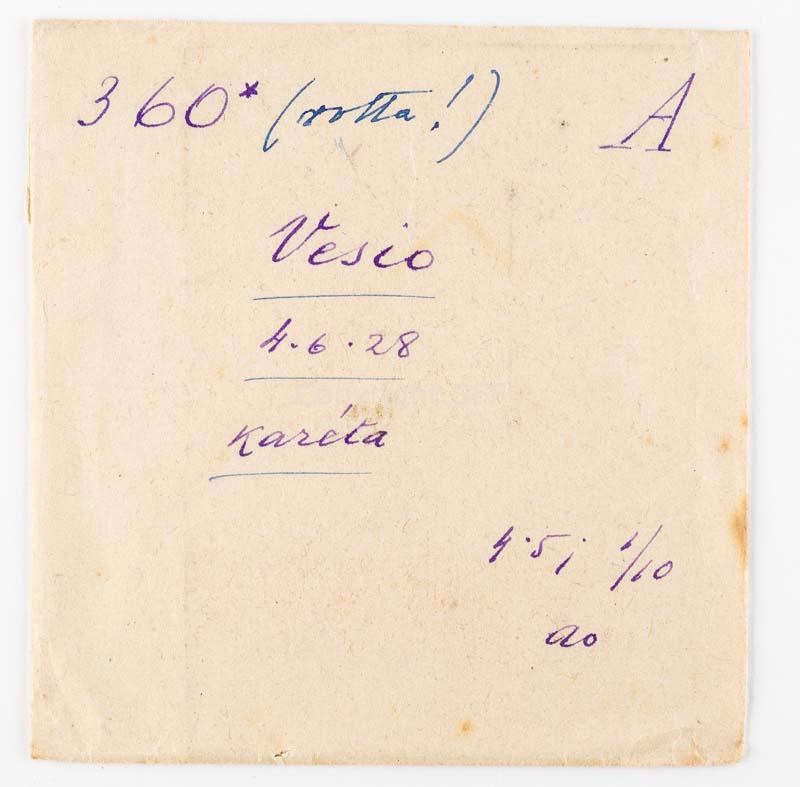 360* (rotta!) A
Vesio
4.6.28
karéta
4.5; 1/10
ao